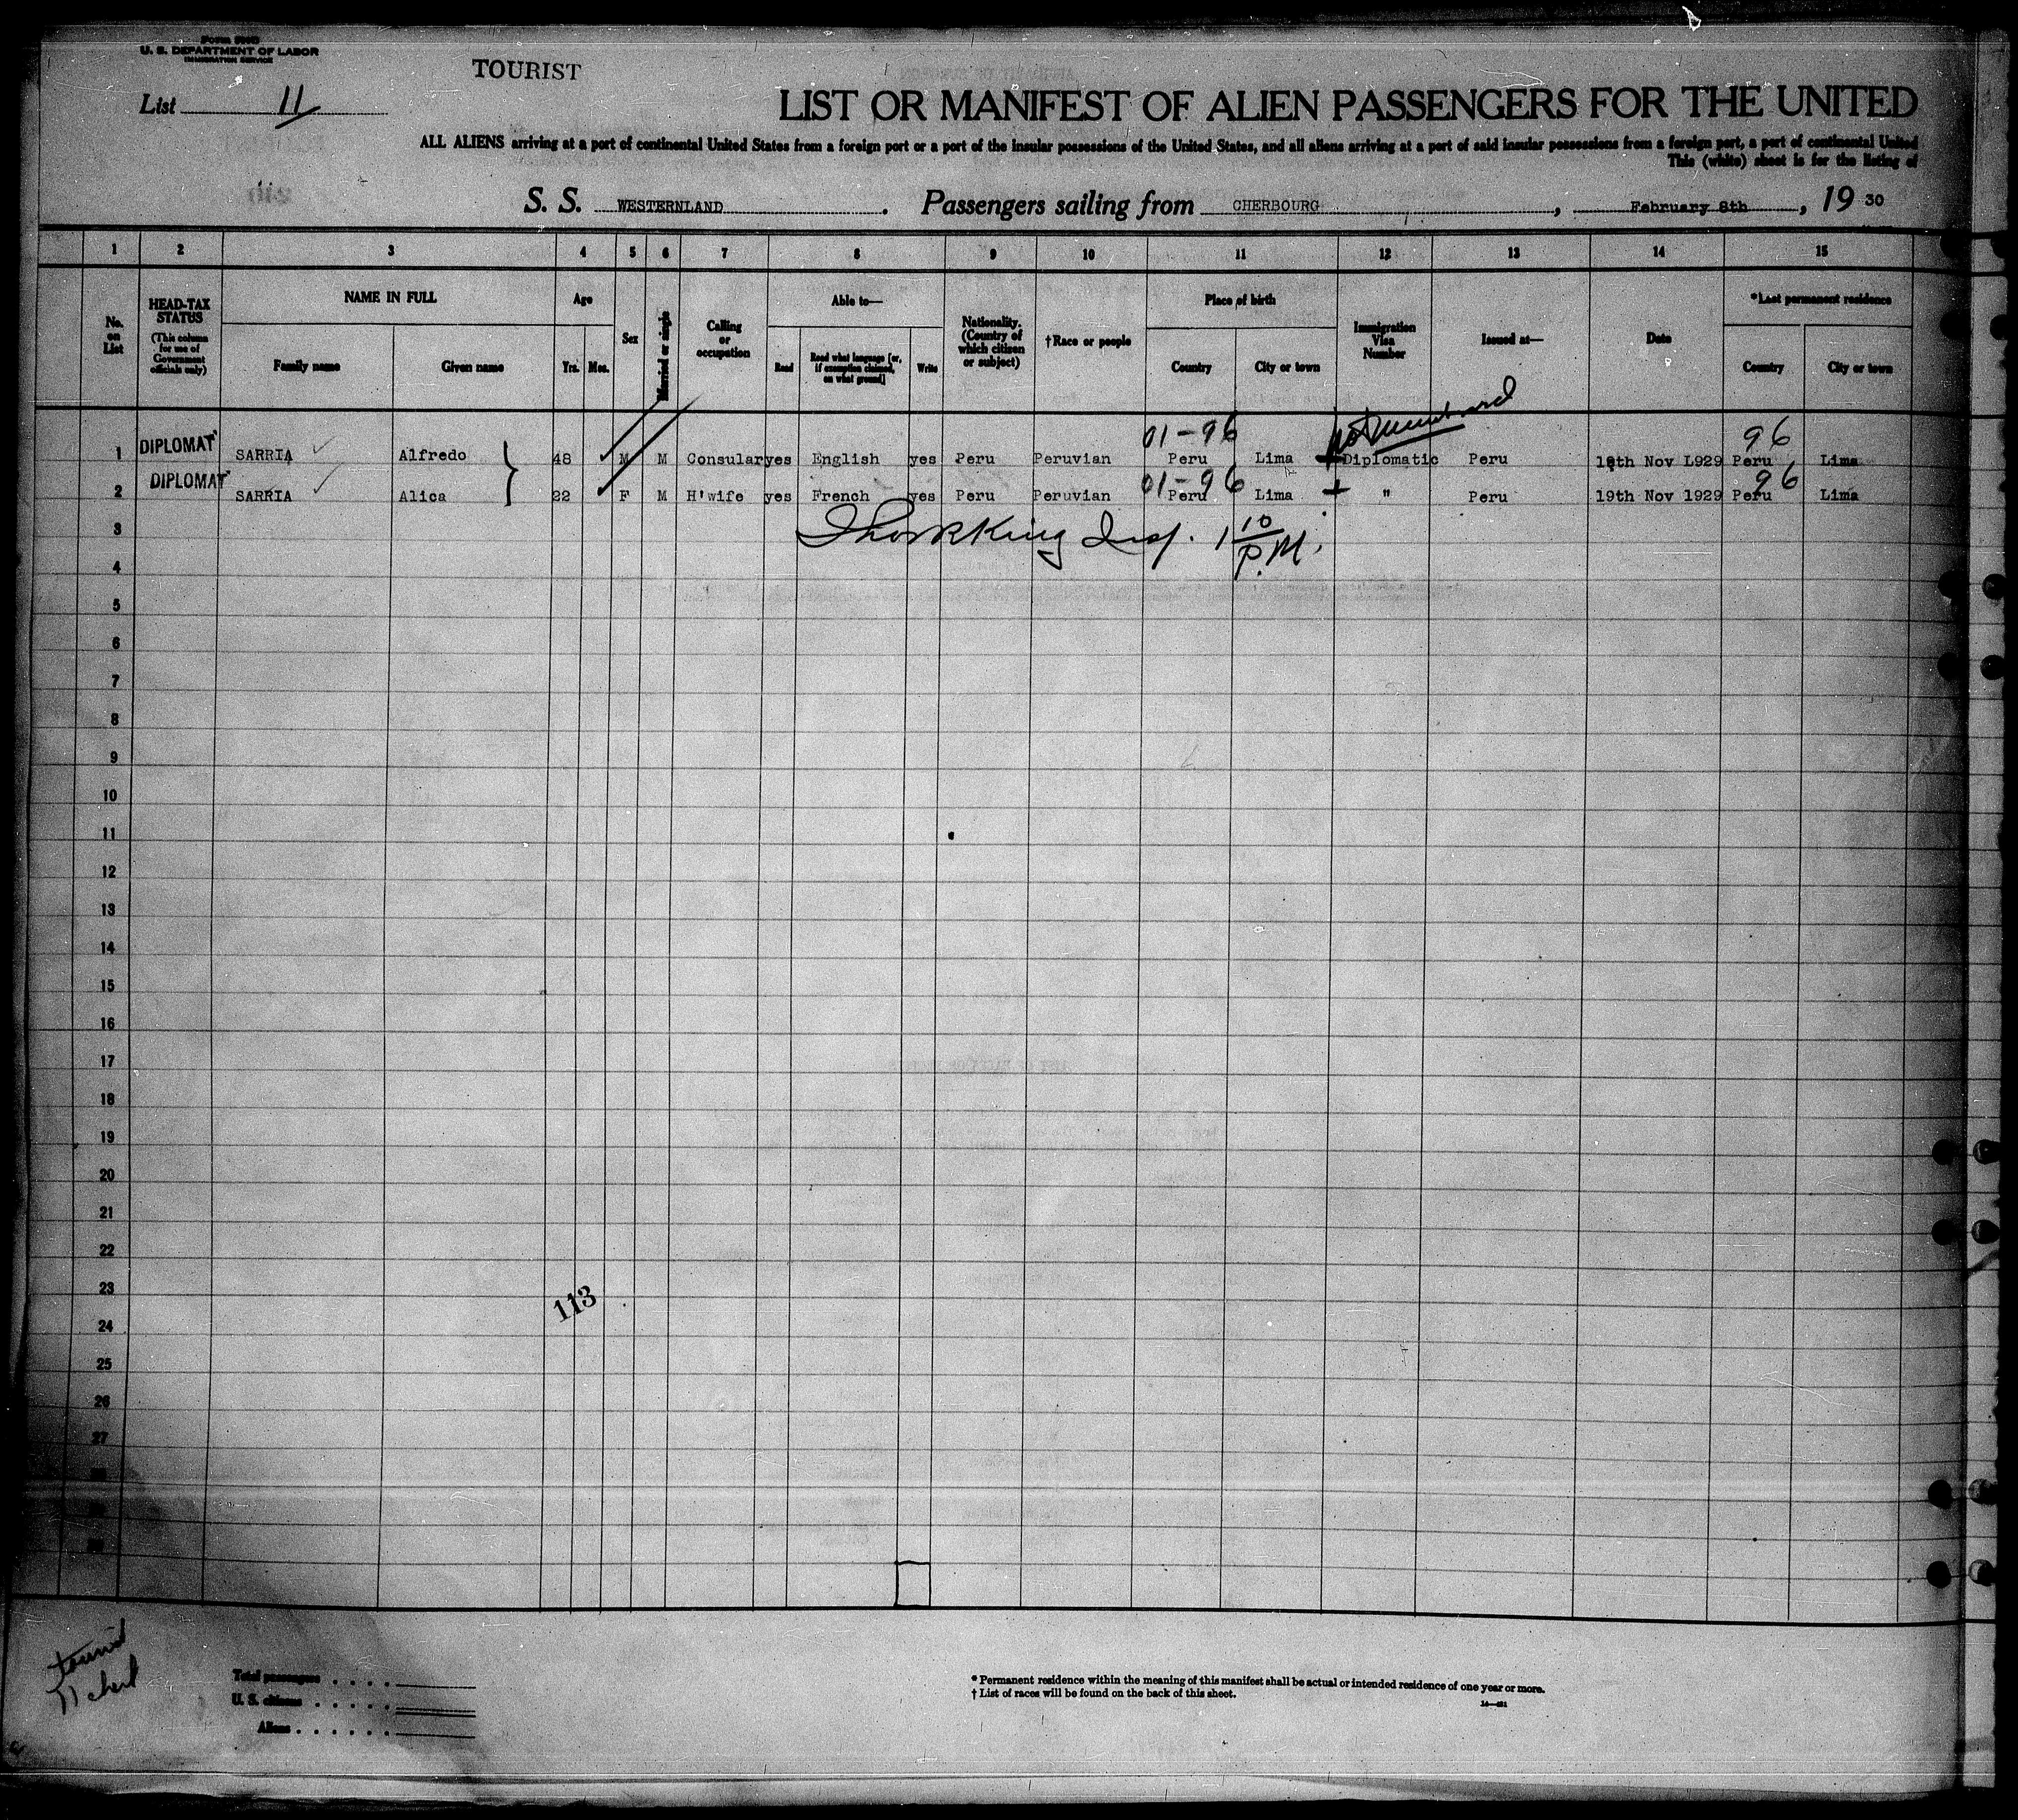 U. S. DEPARTMENT OF LABOR
IMMIGRATION SERVICE
TOURIST
List 11
LIST OR MANIFEST OF ALIEN PASSENGERS FOR THE UNITED
ALL ALIENS arriving at a port of continental United States from a foreign port or a port of the insular possessions of the United States, and all aliens arriving at a port of said insular possessions from a foreign port, a port of continental United
This (white) sheet is for the listing of
S. S. WESTERNLAND. Passengers sailing from CHERBOURG, February 8th, 19 30
1 2 3 4 5 6 7 8 9 10 11 12 13 14 15
No. on List
HEAD-TAX STATUS
(This column for use of Government officials only)
NAME IN FULL
Family name Given name
Age
Yrs. Mos.
Sex
Married or single
Calling or occupation
Able to—
Read
Read what language [or, if exemption claimed, on what ground]
Write
Nationality. (Country of which citizen or subject)
†Race or people
Place of birth
Country City or town
Immigration Visa Number
Issued at—
Date
*Last permanent residence
Country City or town
01-96 96
1 DIPLOMAT SARRIA Alfredo 48 M M Consular yes English yes Peru Peruvian Peru Lima Diplomatic Peru 19th Nov L929 Peru Lima
01-96 96
2 DIPLOMAT SARRIA Alica 22 F M H'wife yes French yes Peru Peruvian Peru Lima " Peru 19th Nov 1929 Peru Lima
3 King Insp. 1 10 P.M.
4
5
6
7
8
9
10
11
12
13
14
15
16
17
18
19
20
21
22
23
113
24
25
26
27
Total passengers
U. S. citizens
Aliens
* Permanent residence within the meaning of this manifest shall be actual or intended residence of one year or more.
† List of races will be found on the back of this sheet.